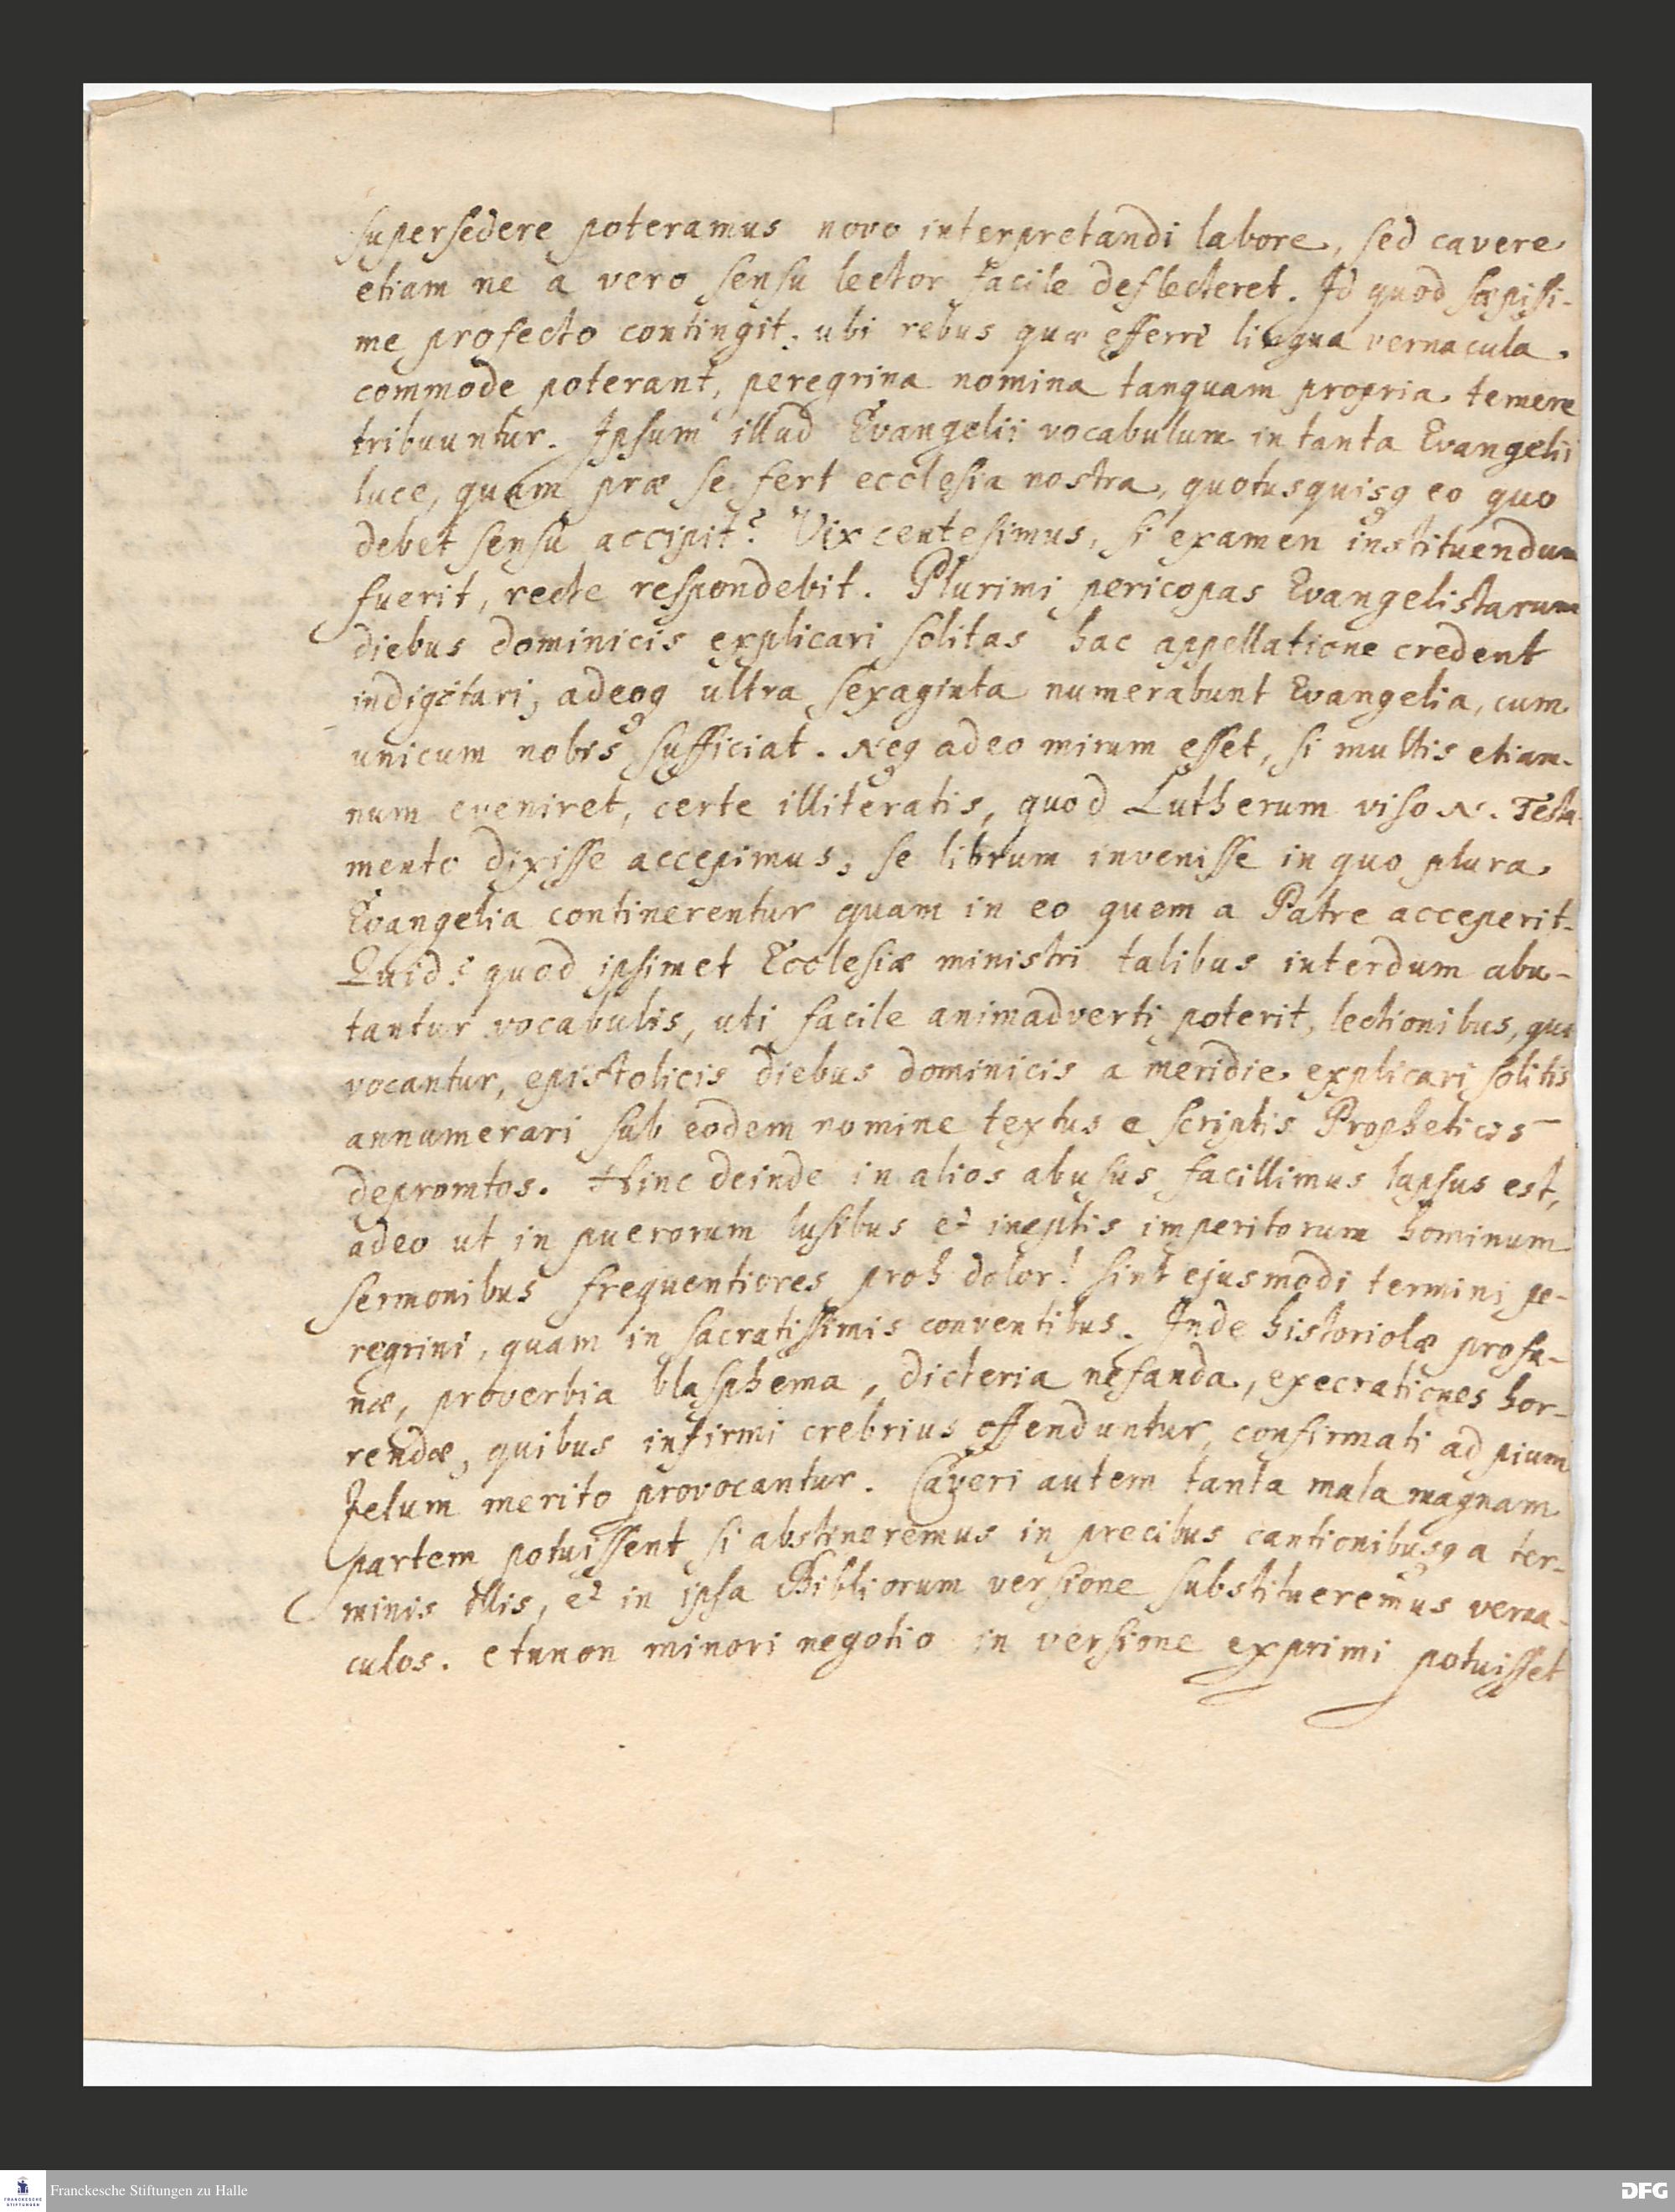 supersedere poteramus novo interpretandi labore, sed cavere
etiam ne a vero sensu lector facile deflecteret. Id quod sæpissi-
me profecto contingit, ubi rebus quæ efferri lingua vernacula
commode poterant, peregrina nomina tanquam propria temere
tribuuntur. Ipsum illud Evangelii vocabulum in tanta Evangelii
luce, quam præ se fert ecclesia nostra, quotusquisq eo quo
debet sensu accipit? Vix centesimus, si examen instituendum
fuerit, recte respondebit. Plurimi pericopas Evangelistarum
diebus dominicis explicari solitas hac appellatione credent
indigitari, adeoq ultra sexaginta numerabunt Evangelia, cum
unicum nobis sufficiat. Neq adeo mirum esset, si multis etiam-
num eveniret, certe illiteratis, quod Lutherum viso N. Testa-
mento dixisse accepimus, se librum invenisse in quo plura
Evangelia continerentur quam in eo quem a Patre acceperit.
Quid? quod ipsimet Ecclesiæ ministri talibus interdum abu-
tantur vocabulis, uti facile animadverti poterit, lectionibus, quæ
vocantur, epistolicis diebus dominicis a meridie explicari solitis
annumerari sub eodem nomine textus e scriptis Propheticis
depromtos. Hinc deinde in alios abusus facillimus lapsus est,
adeo ut in puerorum lusibus et ineptis imperitorum hominum
sermonibus frequentiores proh dolor! sint ejusmodi termini pe-
regrini, quam in sacratissimis conventibus. Inde historiolæ profa-
næ, proverbia blasphema, dicteria nefanda, execrationes hor-
rendæ, quibus infirmi crebrius offenduntur, confirmati ad pium
Zelum merito provocantur. Caveri autem tanta mala magnam
partem potuissent si abstineremus in precibus cantionibusq a ter-
minis illis, et in ipsa Bibliorum versione substitueremus verna-
culos. Annon minori negotio in versione exprimi potuisset
FRANCKESCHE STIFTUNGEN
Franckesche Stiftungen zu Halle
DFG